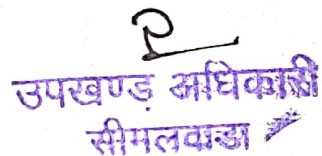 उपखण्ड़ अधिकारी
सीमलवाडा